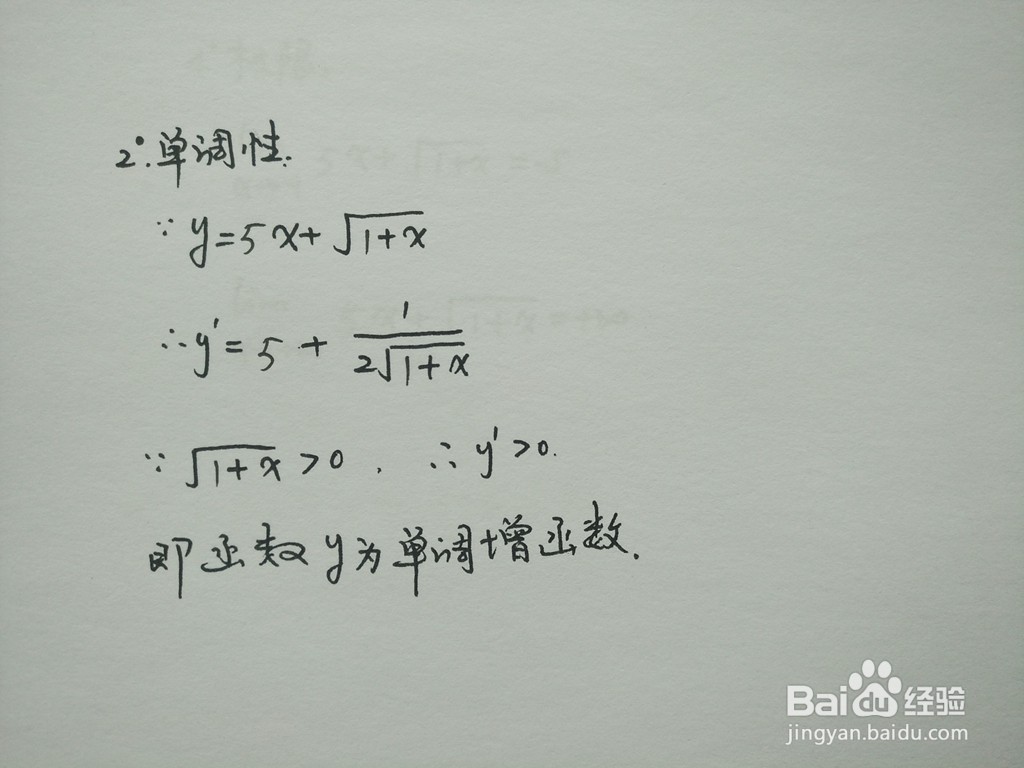 2°.单调性.
∵ y=5x+√(1+x)
∴y'= 5 + 1/(2√(1+x))
∵ √(1+x) >0 , ∴ y'>0.
即函数y为单调增函数.
Bai du 经验
jingyan.baidu.com